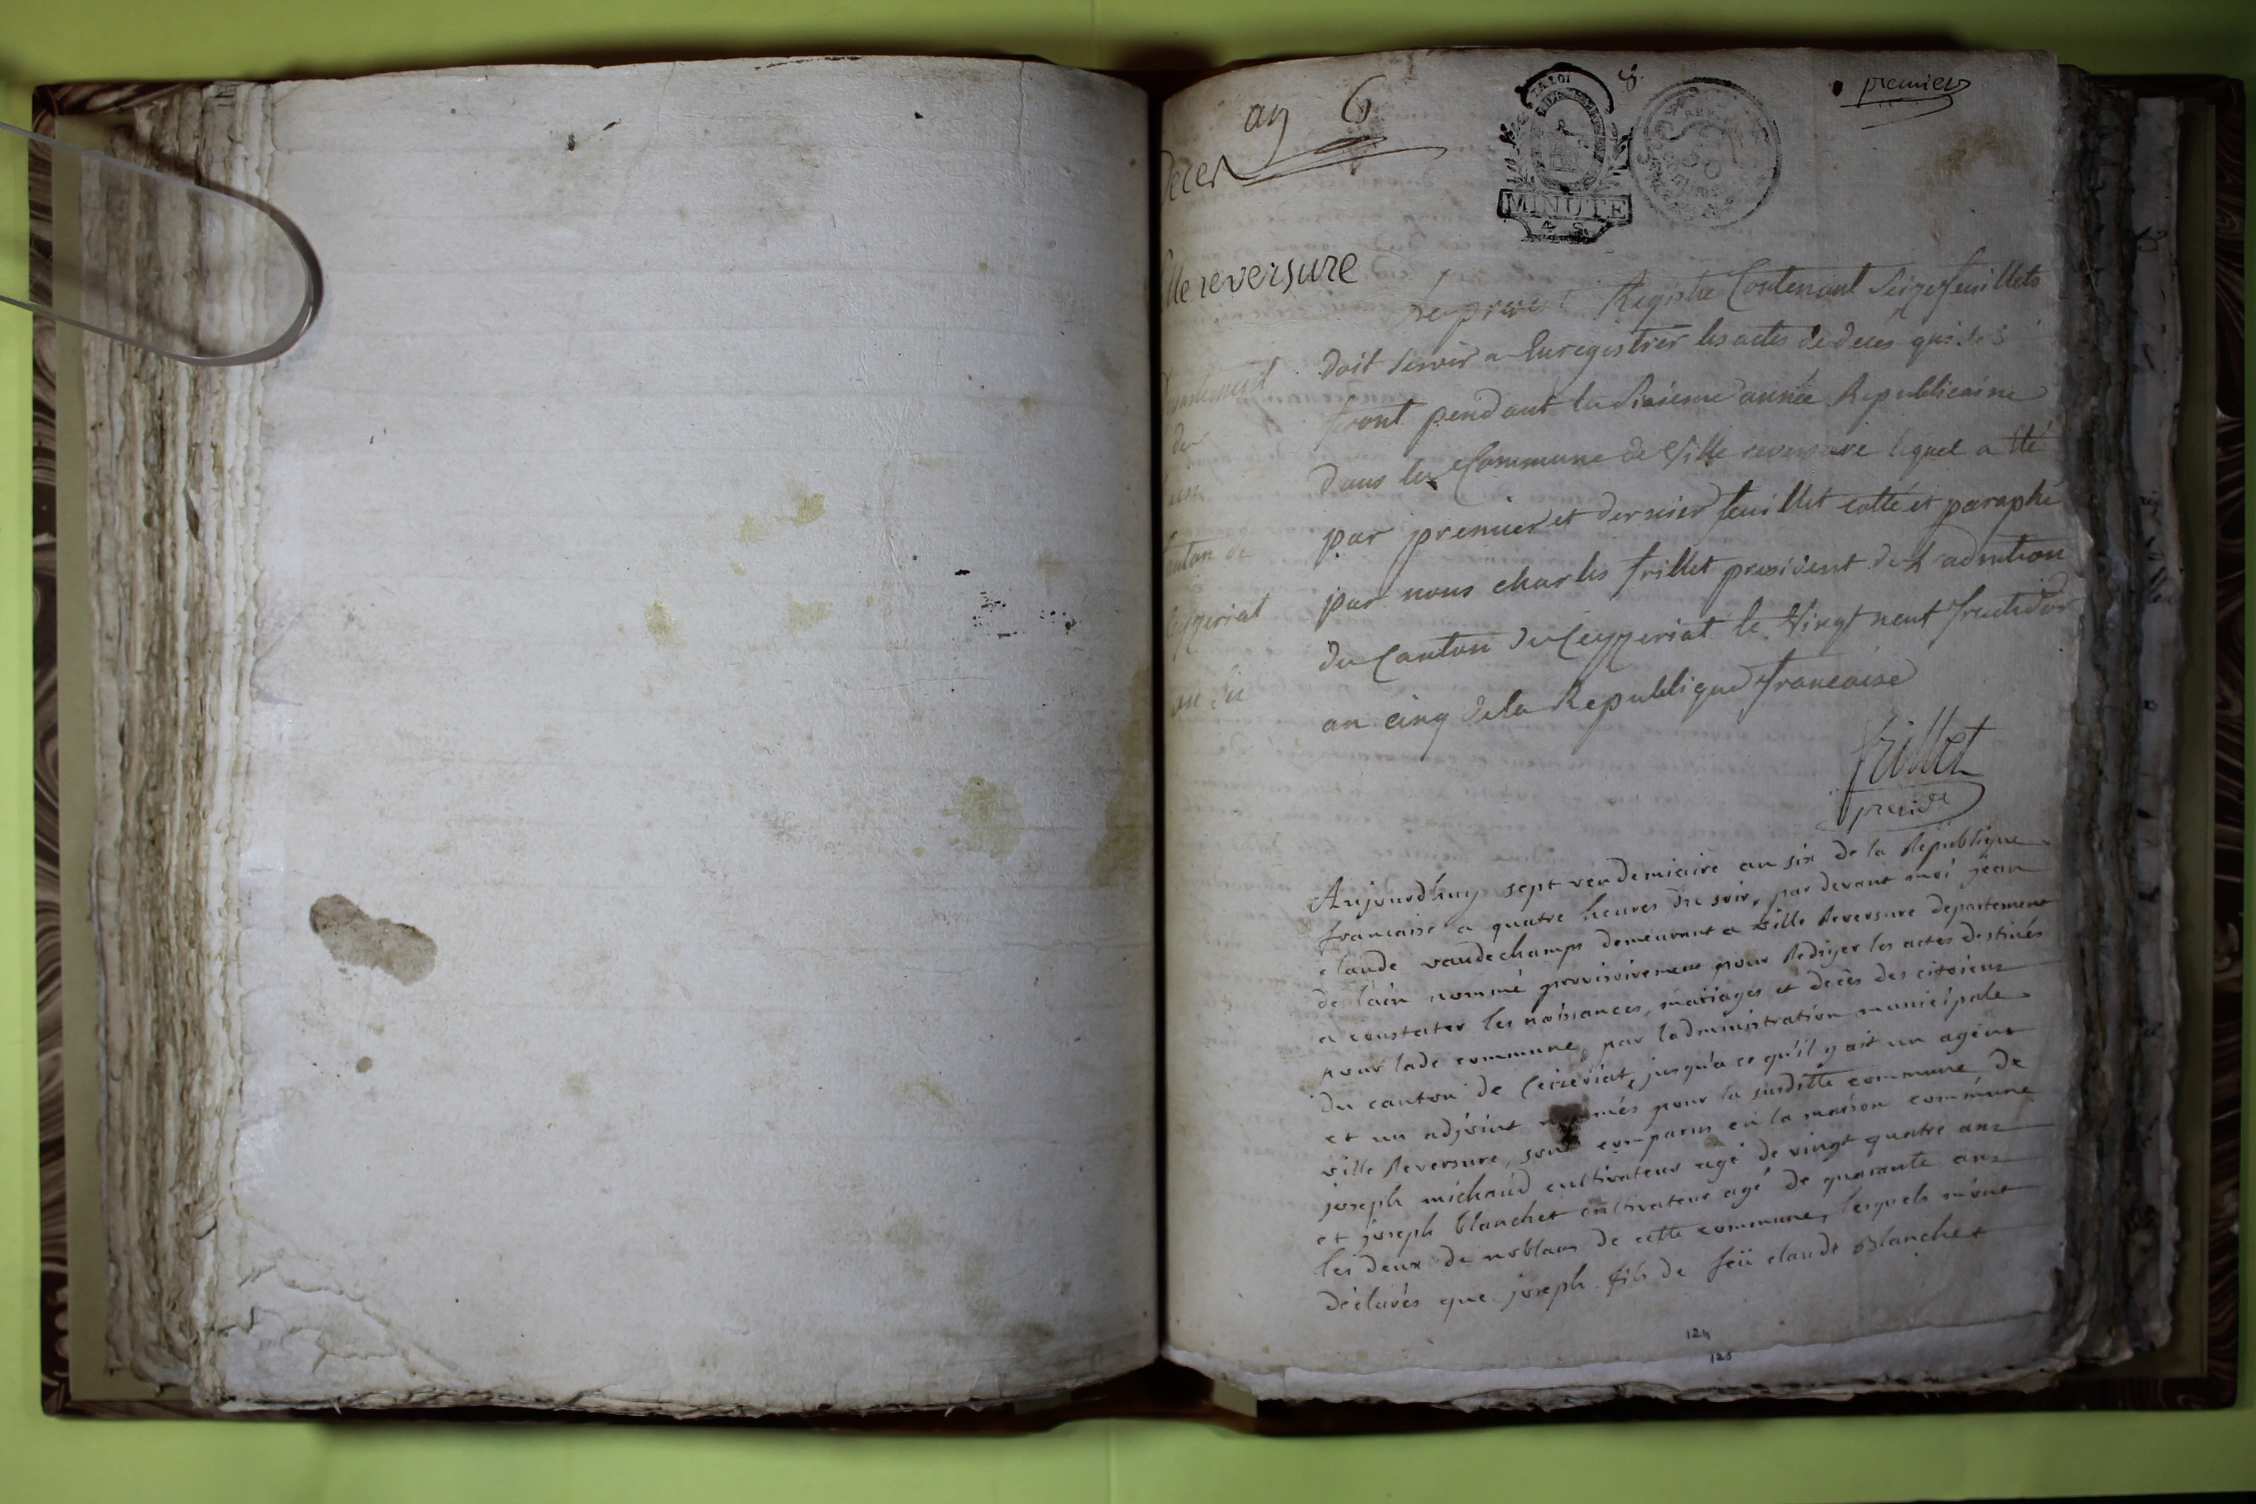 an 6
premier
Deces
LA LOI
MINUTE
lle reversure
Le present Registre Contenant Seize feuillets
doit servir a Enregistrer les actes de deces qui se
feront pendant la Sixieme année Republicaine
dans la Commune de Ville reversure lequel a été
par premier et dernier feuillet cotté et paraphé
par nous charles frillet president de l'admtion
du Canton de Ceyzeriat le Vingt neuf fructidor
an cinq de la Republique francaise
departement
de
canton de
Ceyzeriat
an six
frillet
presidt
Aujourd'huy sept vendemiaire an six de la Republique
francaise a quatre heures du soir, par devant moi jean
claude vaudechamps demeurant a ville Reversure departement
de l'ain nommé provisoirement pour Rediger les actes destinés
a constater les naissances, mariages et décès des citoiens
pour lade commune, par l'administration municipale
du canton de Ceizeriat, jusqu'a ce qu'il y ait un agent
et un adjoint només pour la susditte commune de
ville Reversure, sont comparus en la maison commune
joseph michaud cultivateur agé de vingt quatre ans
et joseph blanchet cultivateur agé de quarante ans
les deux de noblans de cette commune, lesquels m'ont
déclarés que joseph fils de feü claude Blanchet
124
125